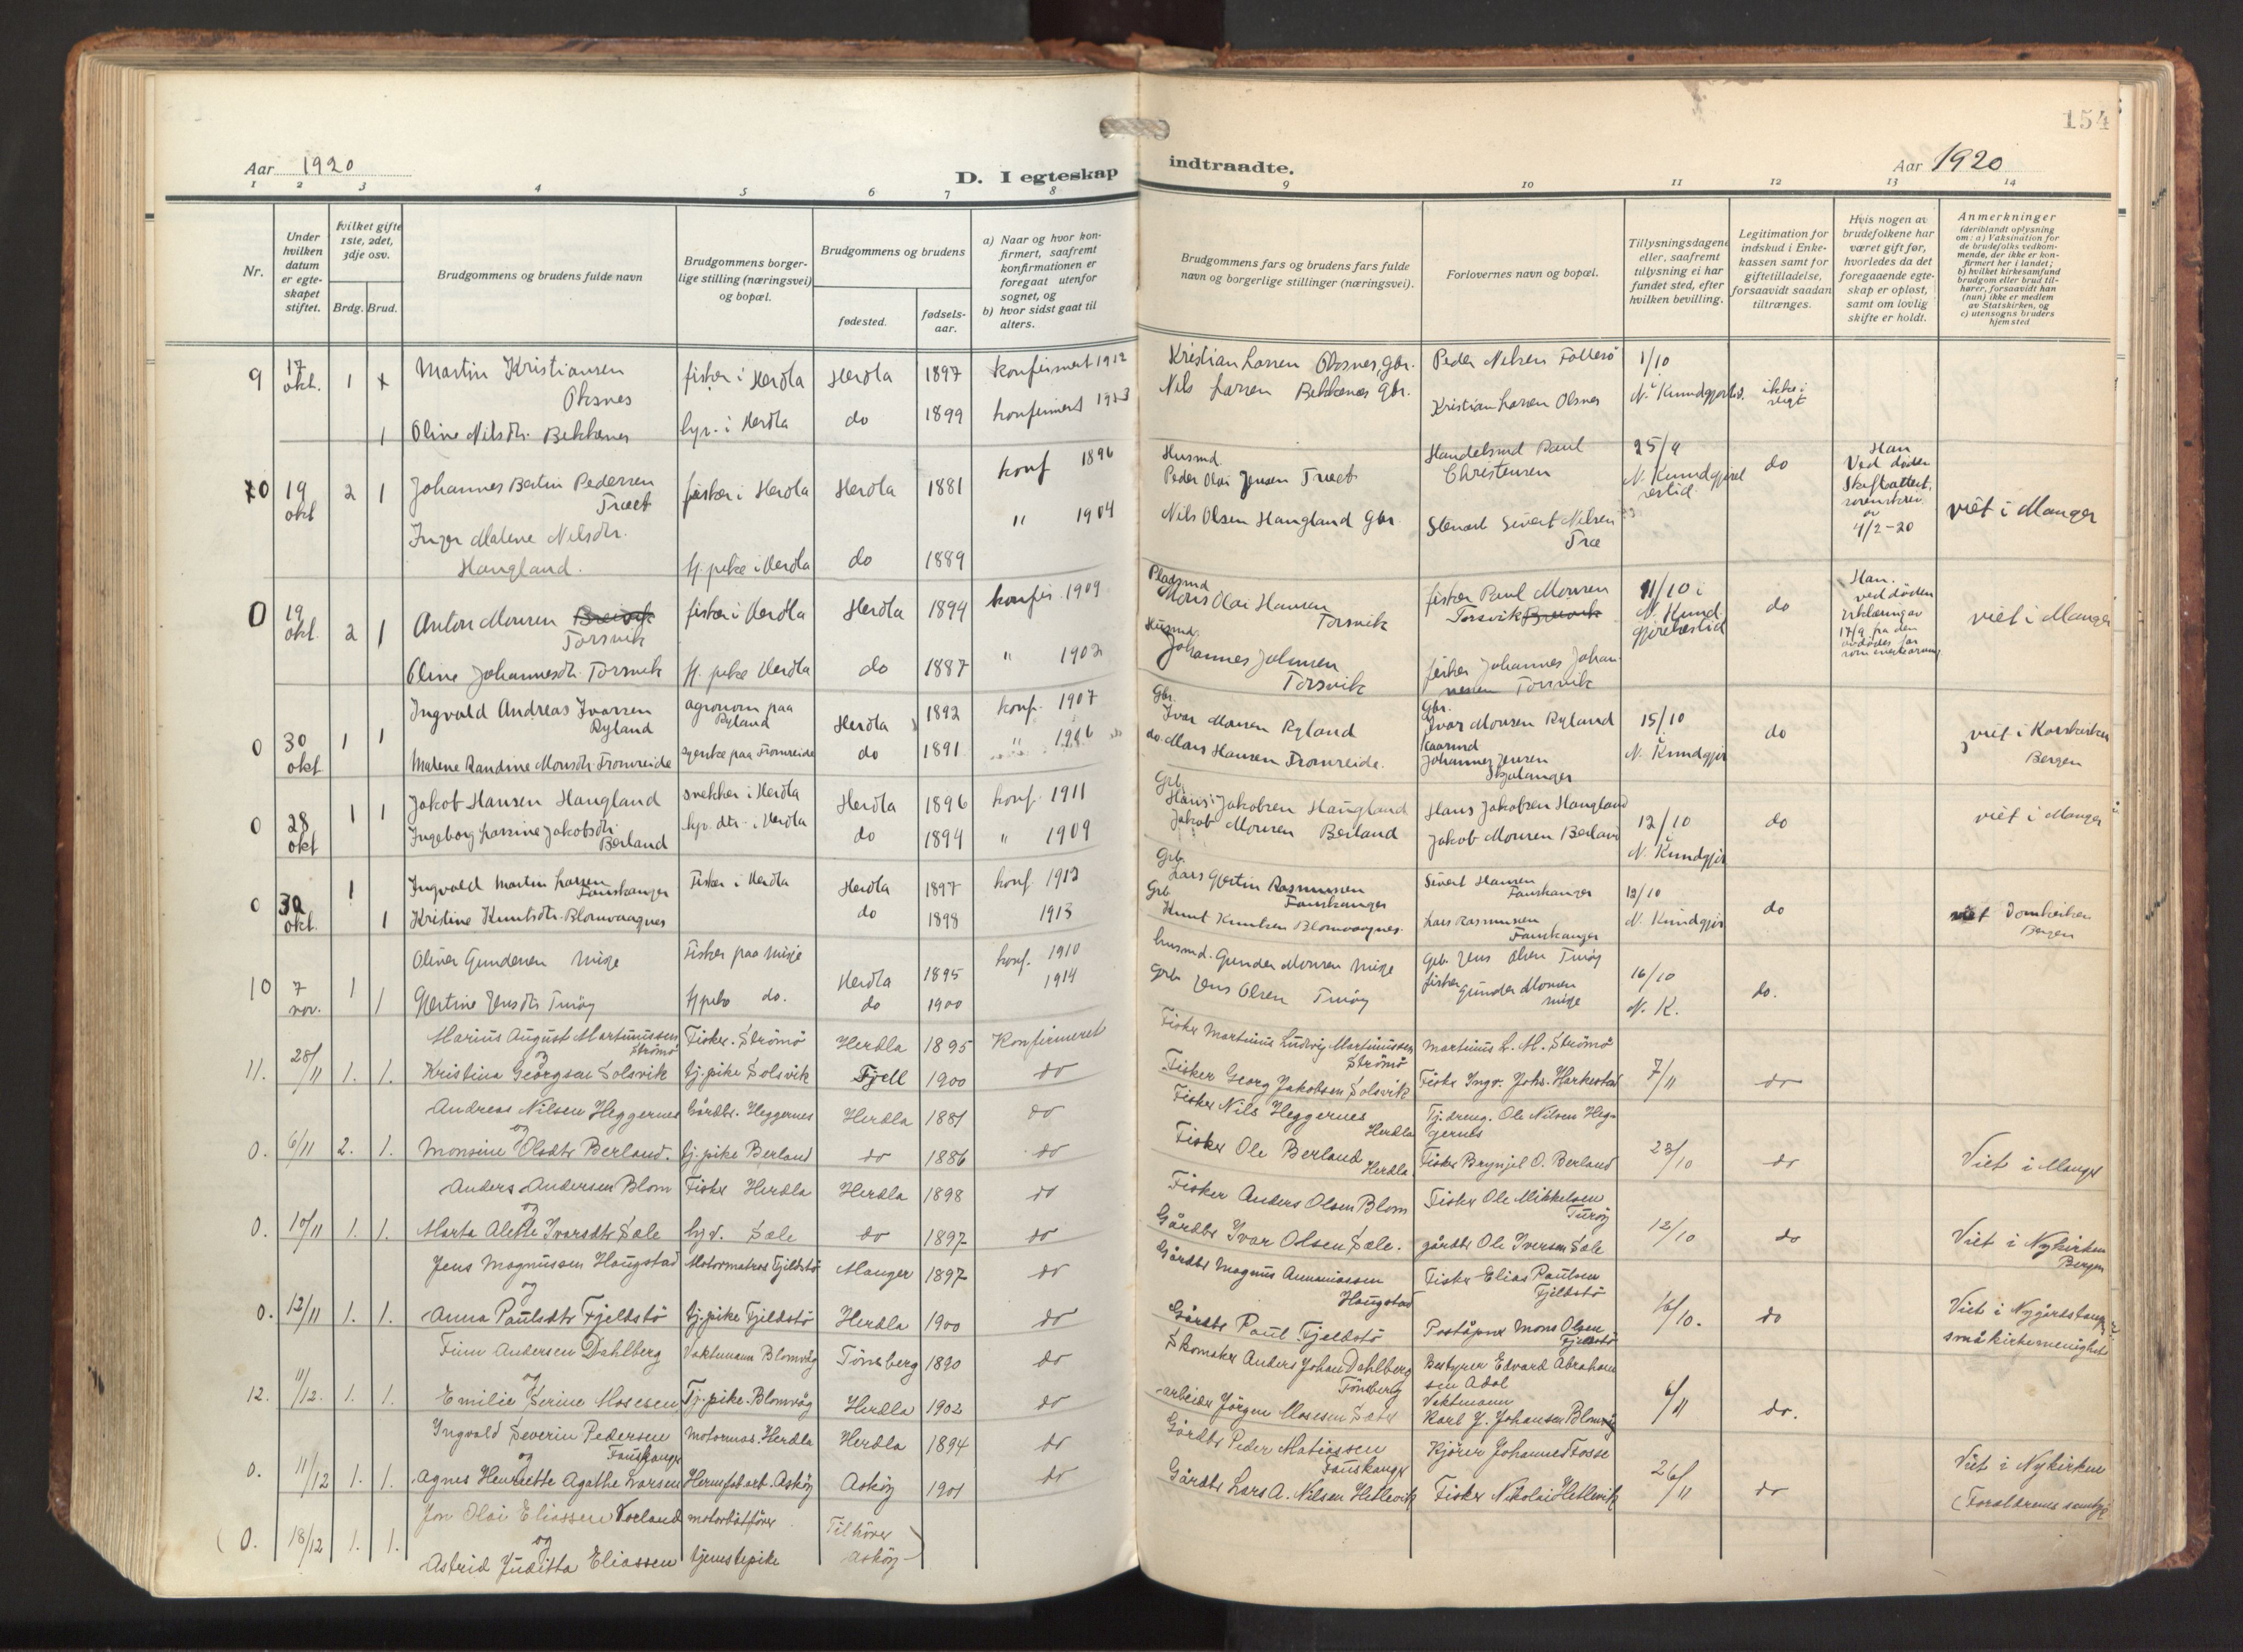 154
Aar 1920
D. I egteskap
indtraadte.
Aar 1920
1 2 3 4 5 6 7 8 9 10 11 12 13 14
Nr.
Under hvilken datum er egteskapet stiftet.
Hvilket gifte 1ste, 2det, 3dje osv.
Brdg. Brud.
Brudgommens og brudens fulde navn
Brudgommens borgerlige stilling (næringsvei) og bopæl.
Brudgommens og brudens
fødested.
fødselsaar.
a) Naar og hvor konfirmert, saafremt konfirmationen er foregaat utenfor sognet, og
b) hvor sidst gaat til alters.
Brudgommens fars og brudens fars fulde navn og borgerlige stillinger (næringsvei).
Forlovernes navn og bopæl.
Tillysningsdagene eller, saafremt tillysning ei har fundet sted, efter hvilken bevilling.
Legitimation for indskud i Enkekassen samt for giftetilladelse, forsaavidt saadan tiltrænges.
Hvis nogen av brudefolkene har været gift før, hvorledes da det foregaaende egteskap er opløst, samt om lovlig skifte er holdt.
Anmerkninger (deriblandt oplysning om: a) Vaksination for de brudefolks vedkommende, der ikke er konfirmert her i landet; b) hvilket kirkesamfund brudgom eller brud tilhører, forsaavidt han (hun) ikke er medlem av Statskirken, og c) utensogns bruders hjemsted
9 17 okt. 1 Martin Kristiansen fisker i Herdla Herdla 1897 konfirmert 1912 Kristian Larsen Gbr. Peder Nilsen 1/10
1 Oline Nilsdtr. Bekkenes i Herdla do 1899 konfirmert 1913 Nils Larsen Bekkenes Gbr. Kristian Larsen
10 19 okt 2 1 Johannes Bertin Pedersen Træet fisker i Herdla Herdla 1881 konf 1896 Husmd. Peder Olai Jensen Træet Handelsmd Paul Christensen 25/9 do Han Ved døden 4/2-20 viet i Manger
Inger Malene Nilsdtr. Haugland. tj. pike i Herdla do 1889 " 1904 Nils Olsen Haugland Gbr. Sivert Nilsen Træ
0 19 okt. 2 1 Anton Monsen Torsvik fisker i Herdla Herdla 1894 konfir. 1909 Pladsmd Mons Olai Hansen Torsvik fisker Paul Monsen Torsvik 11/10 i do Han. ved døden viet i Manger
Oline Johannesdtr. Torsvik tj. pike Herdla do 1887 " 1902 Husmd Johannes Johnsen Torsvik fisker Johannes Johannessen Torsvik
0 30 okt 1 1 Ingvald Andreas Ivarsen Ryland agronom paa Ryland Herdla 1892 konf. 1907 Gbr. Ivar Monsen Ryland Gbr. Ivar Monsen Ryland 15/10 do viet i Korskirken Bergen
Malene Randine Monsdtr. Fromreide paa Fromreide do 1891 " 1906 do Mons Hansen Fromreide. Johannes Jensen Skjelanger N. Kundgjør
0 28 okt 1 1 Jakob Hansen Haugland snekker i Herdla Herdla 1896 konf. 1911 Grb. Hans Jakobsen Haugland Hans Jakobsen Haugland 12/10 do viet i Manger
Ingeborg Larsine Jakobsdtr. Berland i Herdla do 1894 " 1909 Jakob Monsen Berland Jakob Monsen Berland N. Kundgjør
0 30 okt. 1 Ingvald Martin Larsen Fauskanger Fisker i Herdla Herdla 1897 konf. 1912 Grb. Lars Gjertin Rasmussen Fauskanger Sivert Hansen Fauskanger 12/10 do viet Domkirken Bergen
1 Kristine Knutsdtr. Blomvaagnes do 1898 1913 Grb Knut Knutsen Blomvaagnes. Lars Rasmussen Fauskanger N. Kundgjør
10 7 nov. 1 Oliver Gundersen Misje Fisker paa Misje Herdla 1895 konf. 1910 husmd. Gunder Monsen Misje Grb. Jens Olsen Turøy 16/10 do.
1 Gjertine Jensdtr. Turøy do. do 1900 1914 Grb. Jens Olsen Turøy fisker Gunder Monsen Misje N. K.
11. 28/11 1. 1. Marius August Martinussen Strömö og Fisker. Strömö Herdla 1895 Konfirmeret Fisker Martinius Ludvig Martinussen Strömö Martinius L. M. Strömö 7/11 do
Kristina Georgsen Solsvik tj. pike Solsvik Fjell 1900 do Fisker Georg Jakobsen Solsvik Fisker Ingv. Johs. Harkestad
0. 6/11 2. 1. Andreas Nilsen Heggernes og Gårdbr. Heggernes Herdla 1881 do Fisker Nils Heggernes Herdla Tj. dreng. Ole Nilsen Heggernes 23/10 do Viet i Manger
Monsine Olsdtr Berland. tj. pike Berland do 1886 do Fisker Ole Berland Herdla Fisker Brynjel O. Berland
0. 10/11 1. 1. Anders Andersen Blom og Fisker Herdla Herdla 1898 do Fisker Anders Olsen Blom Fisker Ole Mikkelsen Turöy 12/10 do Viet i Nykirken Bergen
Marta Alette Ivarsdtr Sæle Sæle do 1897 do Gårdbr Ivar Olsen Sæle. gårdbr Ole Iversen Sæle
0. 12/11 1. 1. Jens Magnussen Haugstad og Motormatros Fjeldstö Manger 1897 do Gårdbr Magnus Haugstad Fisker Elias Paulsen Fjeldstö 16/10. do Viet i Nygårdstangen småkirkemenighet
Anna Paulsdtr Fjeldstö tj. pike Fjeldstö Herdla 1900 do Gårdbr Paul Fjeldstö Poståpner Mons Olsen Fjeldstö
12. 11/12. 1. 1. Finn Andersen Dahlberg og Vaktmann Blomvåg Tönsberg 1890 do Skomaker Anders Johan Dahlberg Tönsberg Bestyrer Edvard Abrahamsen Adal 6/11 do.
Emilie Serine Mosesen Tj. pike. Blomvåg Herdla 1902 do arbeider Jörgen Mosesen Vaktmann Karl J. Johansen Blomvåg
0. 11/12 1. 1. Ingvald Severin Pedersen Fauskanger og Motormas. Herdla Herdla 1894 do Gårdbr Peder Matiassen Fauskanger Kjörer Johannes Fosse 26/11 do Viet i Nykirken
Agnes Henriette Agathe Larsen Hermfab.arb. Asköy Asköy 1901 do Gårdbr Lars A. Nilsen Hetlevik Fisker Nikolai Hetlevik (Forældrenes samtyk
(0. 18/12 1. 1. Jon Olai Eliassen og motorbåtförer Tilhörer Asköy)
Astrid Juditta Eliassen tjenestepike